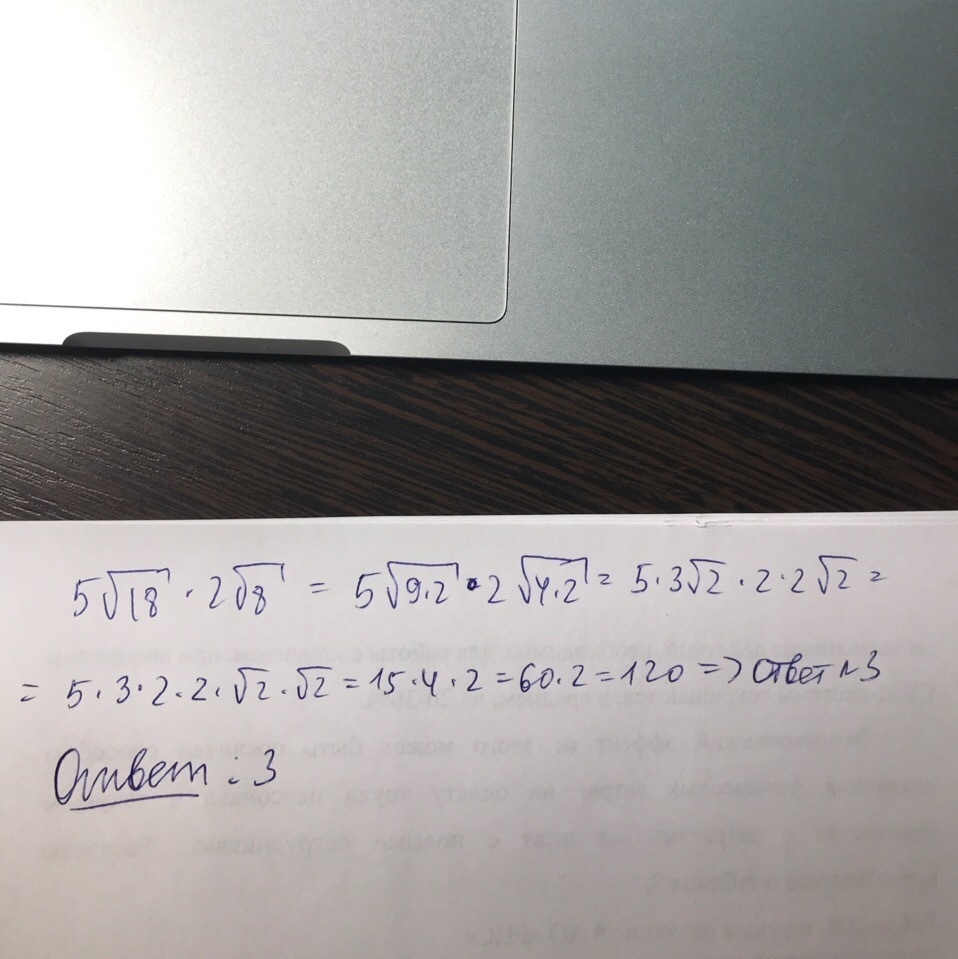 5√18 · 2√8 = 5√9·2 · 2√4·2 = 5·3√2 · 2·2√2 =
= 5·3·2·2·√2·√2 = 15·4·2 = 60·2 = 120 => Ответ №3
Ответ: 3